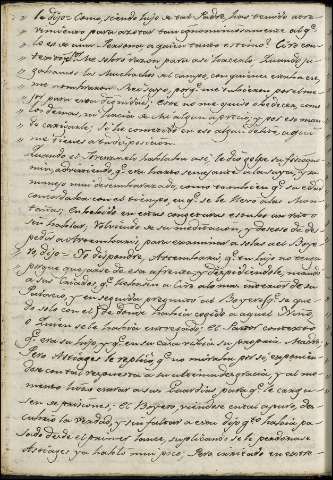 " le dijo: Como, siendo hijo de tal Padre, has tenido atre-
" vimiento para azotar tan ignominiosamente al qe
" lo es de una Persona, a quien tanto estimo? Ciro con
" testó: Me sobró razon para asi hacerlo. Quando ju
" gabamos los Muchachos del campo, con quienes me
" me nombraron Rey suyo, porqe me tubieron por el mas
" para esta dignidad; Este no me quiso obedecer, como
" los demas, ni hacia de Mi algun aprecio, y por eso man
" dé castigarle. Si he cometido en eso algun delito, aqui
" me tienes a tu disposicion.
Quando el Arremedo hablaba asi, le dio golpe su fisono
mia, advirtiendo qe era harto semejante a la suya, y su
manejo mui desembarazado, como tambien qe su edad
concordaba con el tiempo, en qe se le llevó a las Mon-
tañas; Embebido en estas conjeturas estubo un rato
sin hablar. Volviendo de su meditacion, y deseoso de des
pedir a Artembares, para examinar a solas al Boye
ro, dijo: Yo dispondré, Artembares, qe tu hijo no tenga
porque quejarse de esa afrenta, y despidiendole, mandó
a sus Criados, qe llebasen a Ciro a lo mas interior de su
Palacio, y en seguida preguntó al Boyero, qe se que
dó solo con el, de donde habia cogido a aquel Niño,
o Quien se le habia entregado; El Pastor contestó
qe era su hijo, y qe en su casa vivia su propia Madre.
Pero Astiages le replicó qe no miraba por sí, exponien
dose con tal respuesta a su ultima desgracia, y al mo-
mento hizo entrar a sus Guardias para qe le carga
sen de prisiones; El Boyero, viendose en tal apuro, des-
cubrió la verdad, y sin faltar a ella dijo qto habia pa-
sado desde el primer lance, suplicando se le perdonase
Astiages ya habló mui poco, Pero irritado en estre